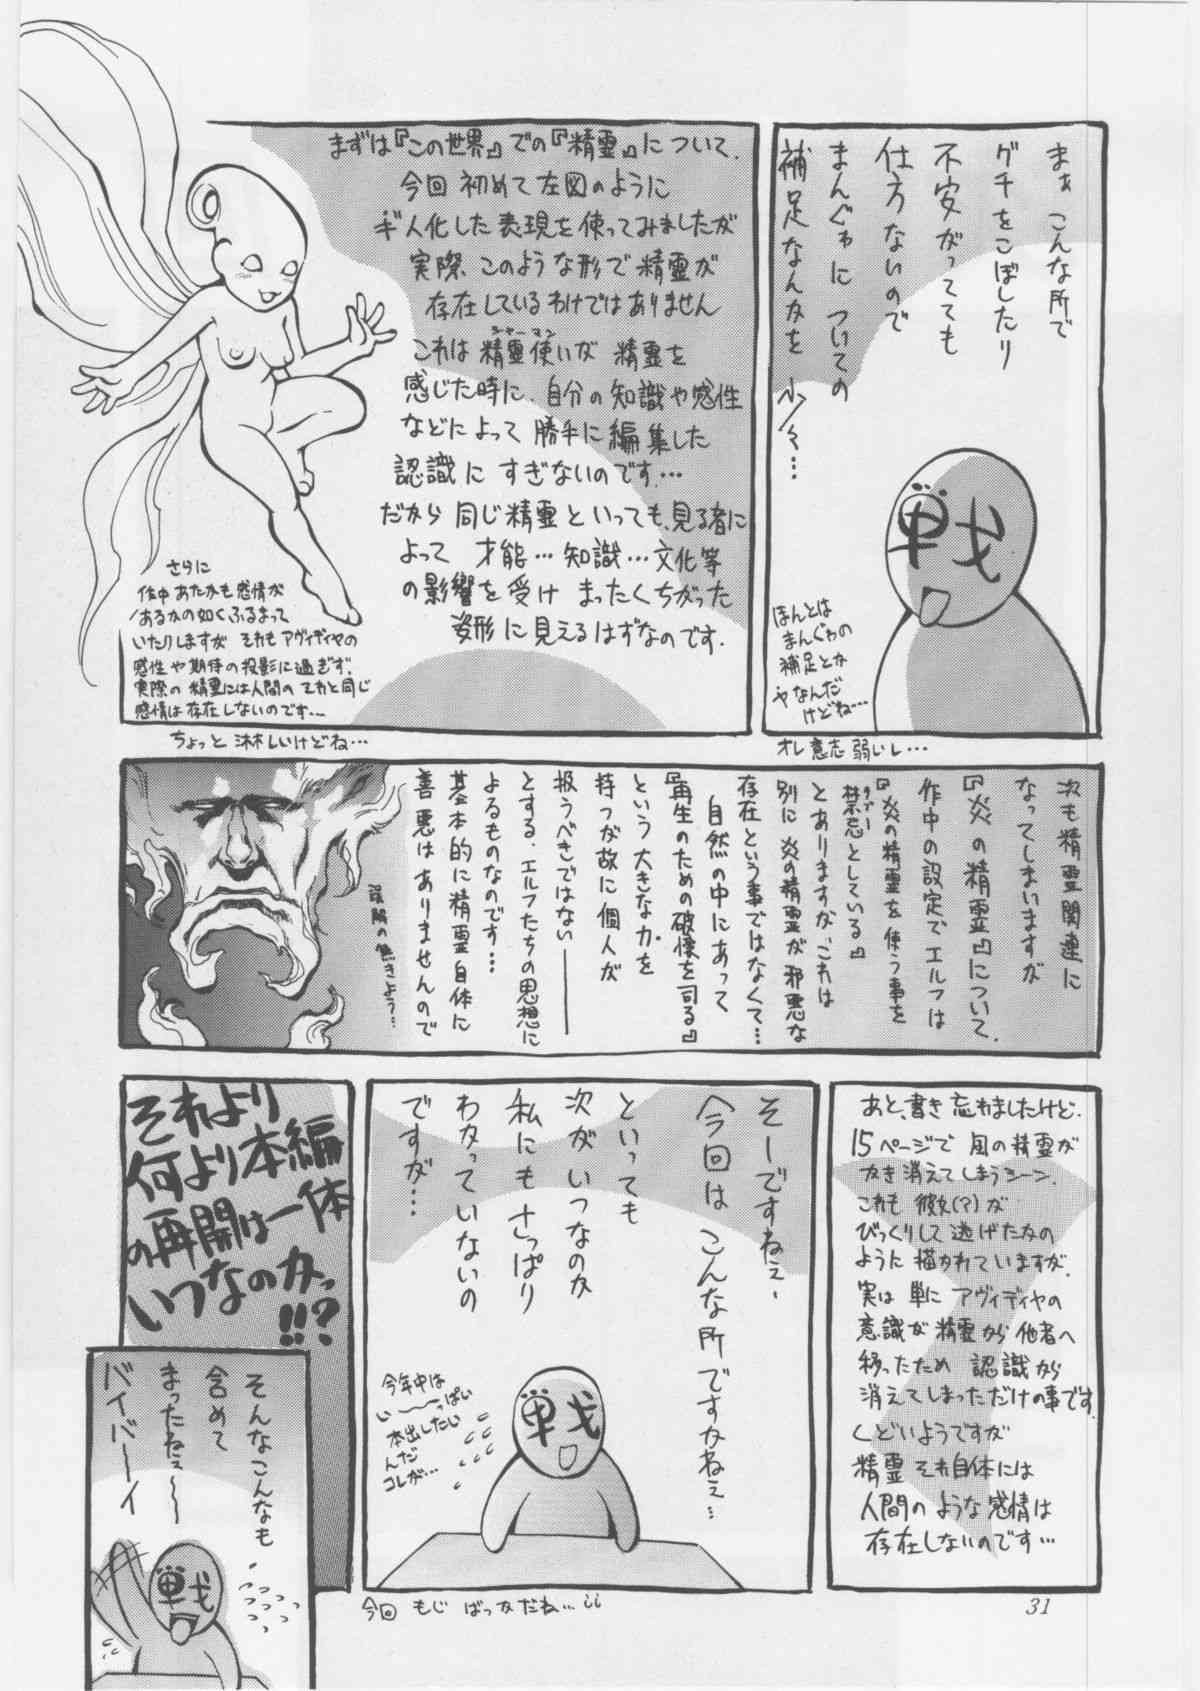 まぁ こんな所で
グチをこぼしたり
不安がってても
仕方ないので
まんぐゎについての
補足なんかを 少々…
戦
ほんとは
まんぐゎの
補足とか
ヤなんだ
けどね…
オレ意志弱いし…
まずは『この世界』での『精霊』について、
今回 初めて左図のように
ギ人化した表現を使ってみましたが
実際 このような形で精霊が
存在しているわけではありません
シャーマン
これは 精霊使いが 精霊を
感じた時に、自分の知識や感性
などによって 勝手に編集した
認識に すぎないのです…
だから 同じ精霊といっても、見る者に
よって 才能…知識…文化等
の影響を受け まったくちがった
姿形に見えるはずなのです.
さらに
作中 あたかも感情が
あるかの如くふるまって
いたりしますが それも アヴィディヤの
感性や期待の投影に過ぎず、
実際の精霊には人間のそれと同じ
感情は存在しないのです…
ちょっと 淋しいけどね…
次も精霊関連に
なってしまいますが
『炎の精霊』について、
作中の設定でエルフは
『炎の精霊を使う事を
タブー
禁忌としている』
とありますが、これは
別に 炎の精霊が邪悪な
存在という事ではなくて…
自然の中にあって
『再生のための破壊を司る』
という大きな力を
持つが故に個人が
扱うべきではない――
とする、エルフたちの思想に
よるものなのです…
基本的に精霊自体に
善悪はありませんので
誤解の無きよう…
あと、書き忘れましたけど、
15ページで 風の精霊が
かき消えてしまうシーン、
これも 彼女(?)が
びっくりして逃げたかの
ように描かれていますが、
実は 単に アヴィディヤの
意識が精霊から他者へ
移ったため 認識から
消えてしまっただけの事です.
くどいようですが
精霊それ自体には
人間のような感情は
存在しないのです…
そーですねぇ、
今回は こんな所ですかねぇ…
といっても
次が いつなのか
私にも さっぱり
わかっていないの
ですが…
今年中は
い〜〜っぱい
本出したい
んだ
コレが…
戦
今回 もじ ばっかだね…
それより
何より本編
の再開は一体
いつなのかっ
!!?
そんなこんなも、
含めて
まったねぇ〜〜
バイバーイ
戦
31